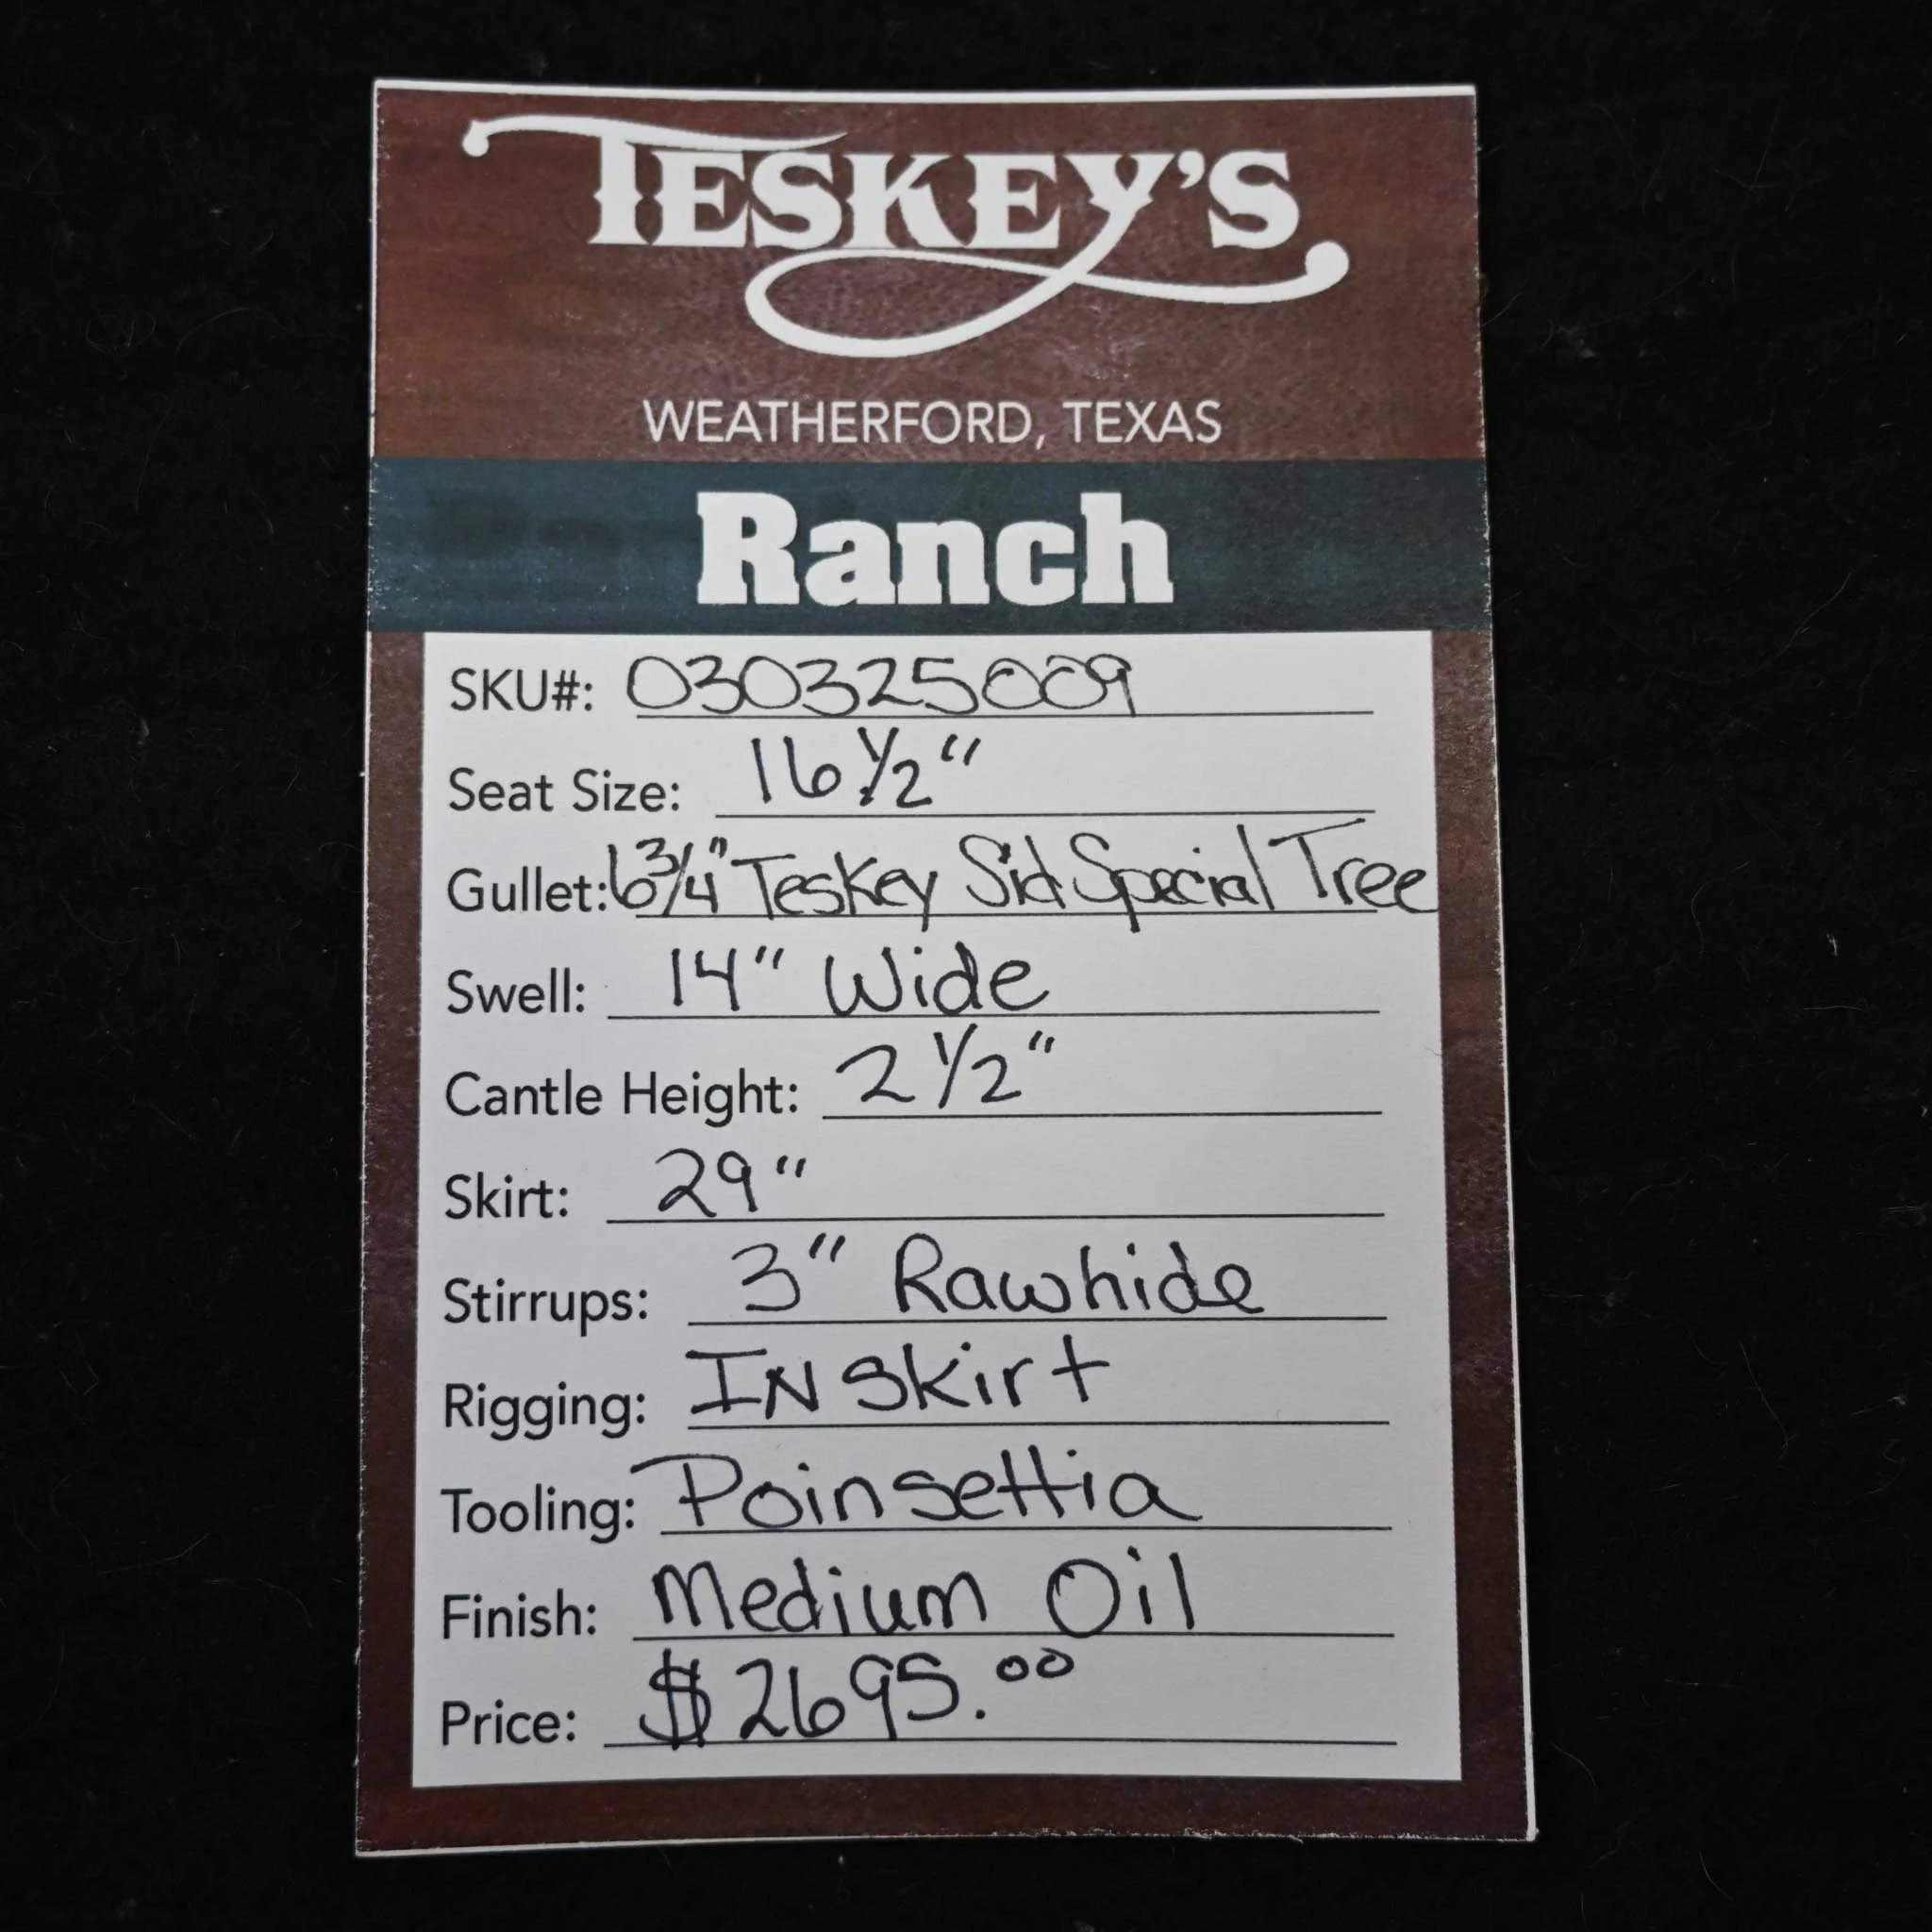 TESKEY'S
WEATHERFORD, TEXAS
Ranch
SKU#: 030325009
Seat Size: 16 1/2"
Gullet: 6 3/4" Teskey Sid Special Tree
Swell: 14" Wide
Cantle Height: 2 1/2"
Skirt: 29"
Stirrups: 3" Rawhide
Rigging: IN Skirt
Tooling: Poinsettia
Finish: Medium Oil
Price: $2695.00